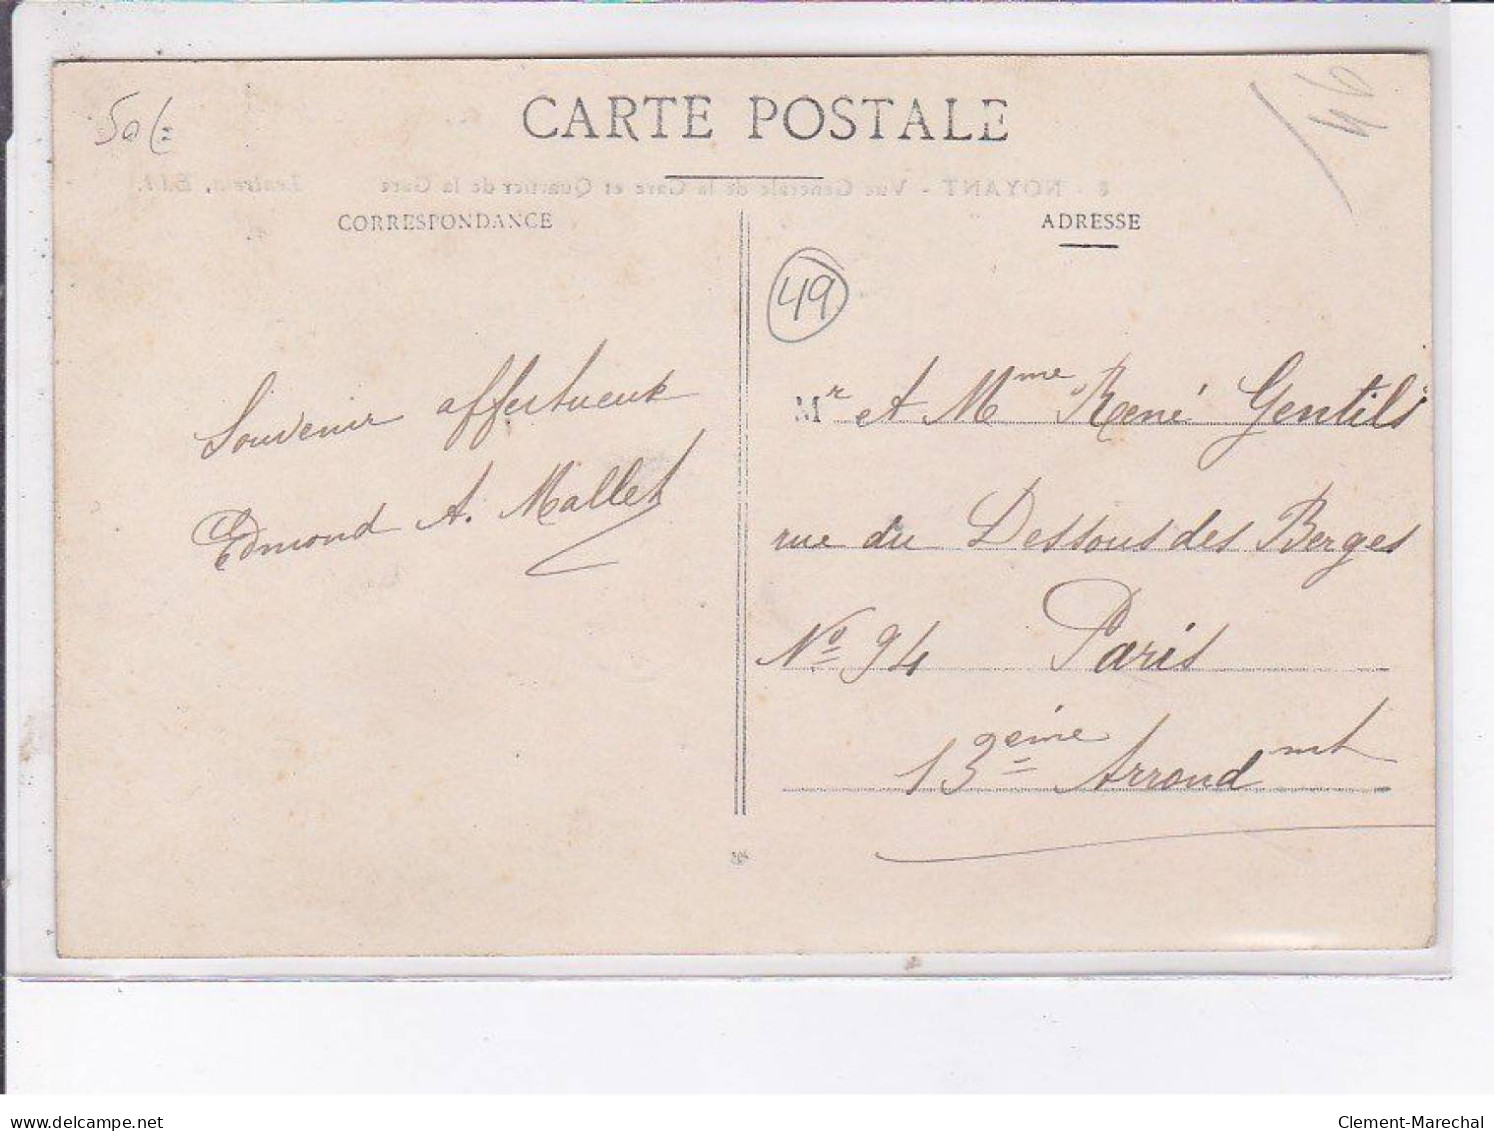 CARTE POSTALE
46
8 - NOYANT - Vue Générale de la Gare et Quartier de la Gare
CORRESPONDANCE
Souvenir affectueux
Edmond A. Mallet
ADRESSE
49
Mr et Mme René Gentils
rue du Dessous des Berges
No 94 Paris
13ème Arrondmt
delcampe.net
Clement-Marechal